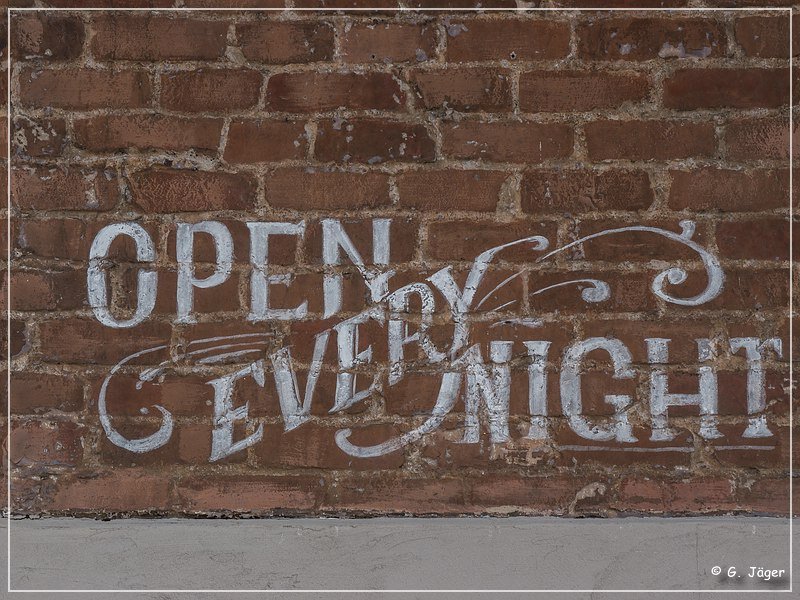 OPEN
EVERY
NIGHT
© G. Jäger